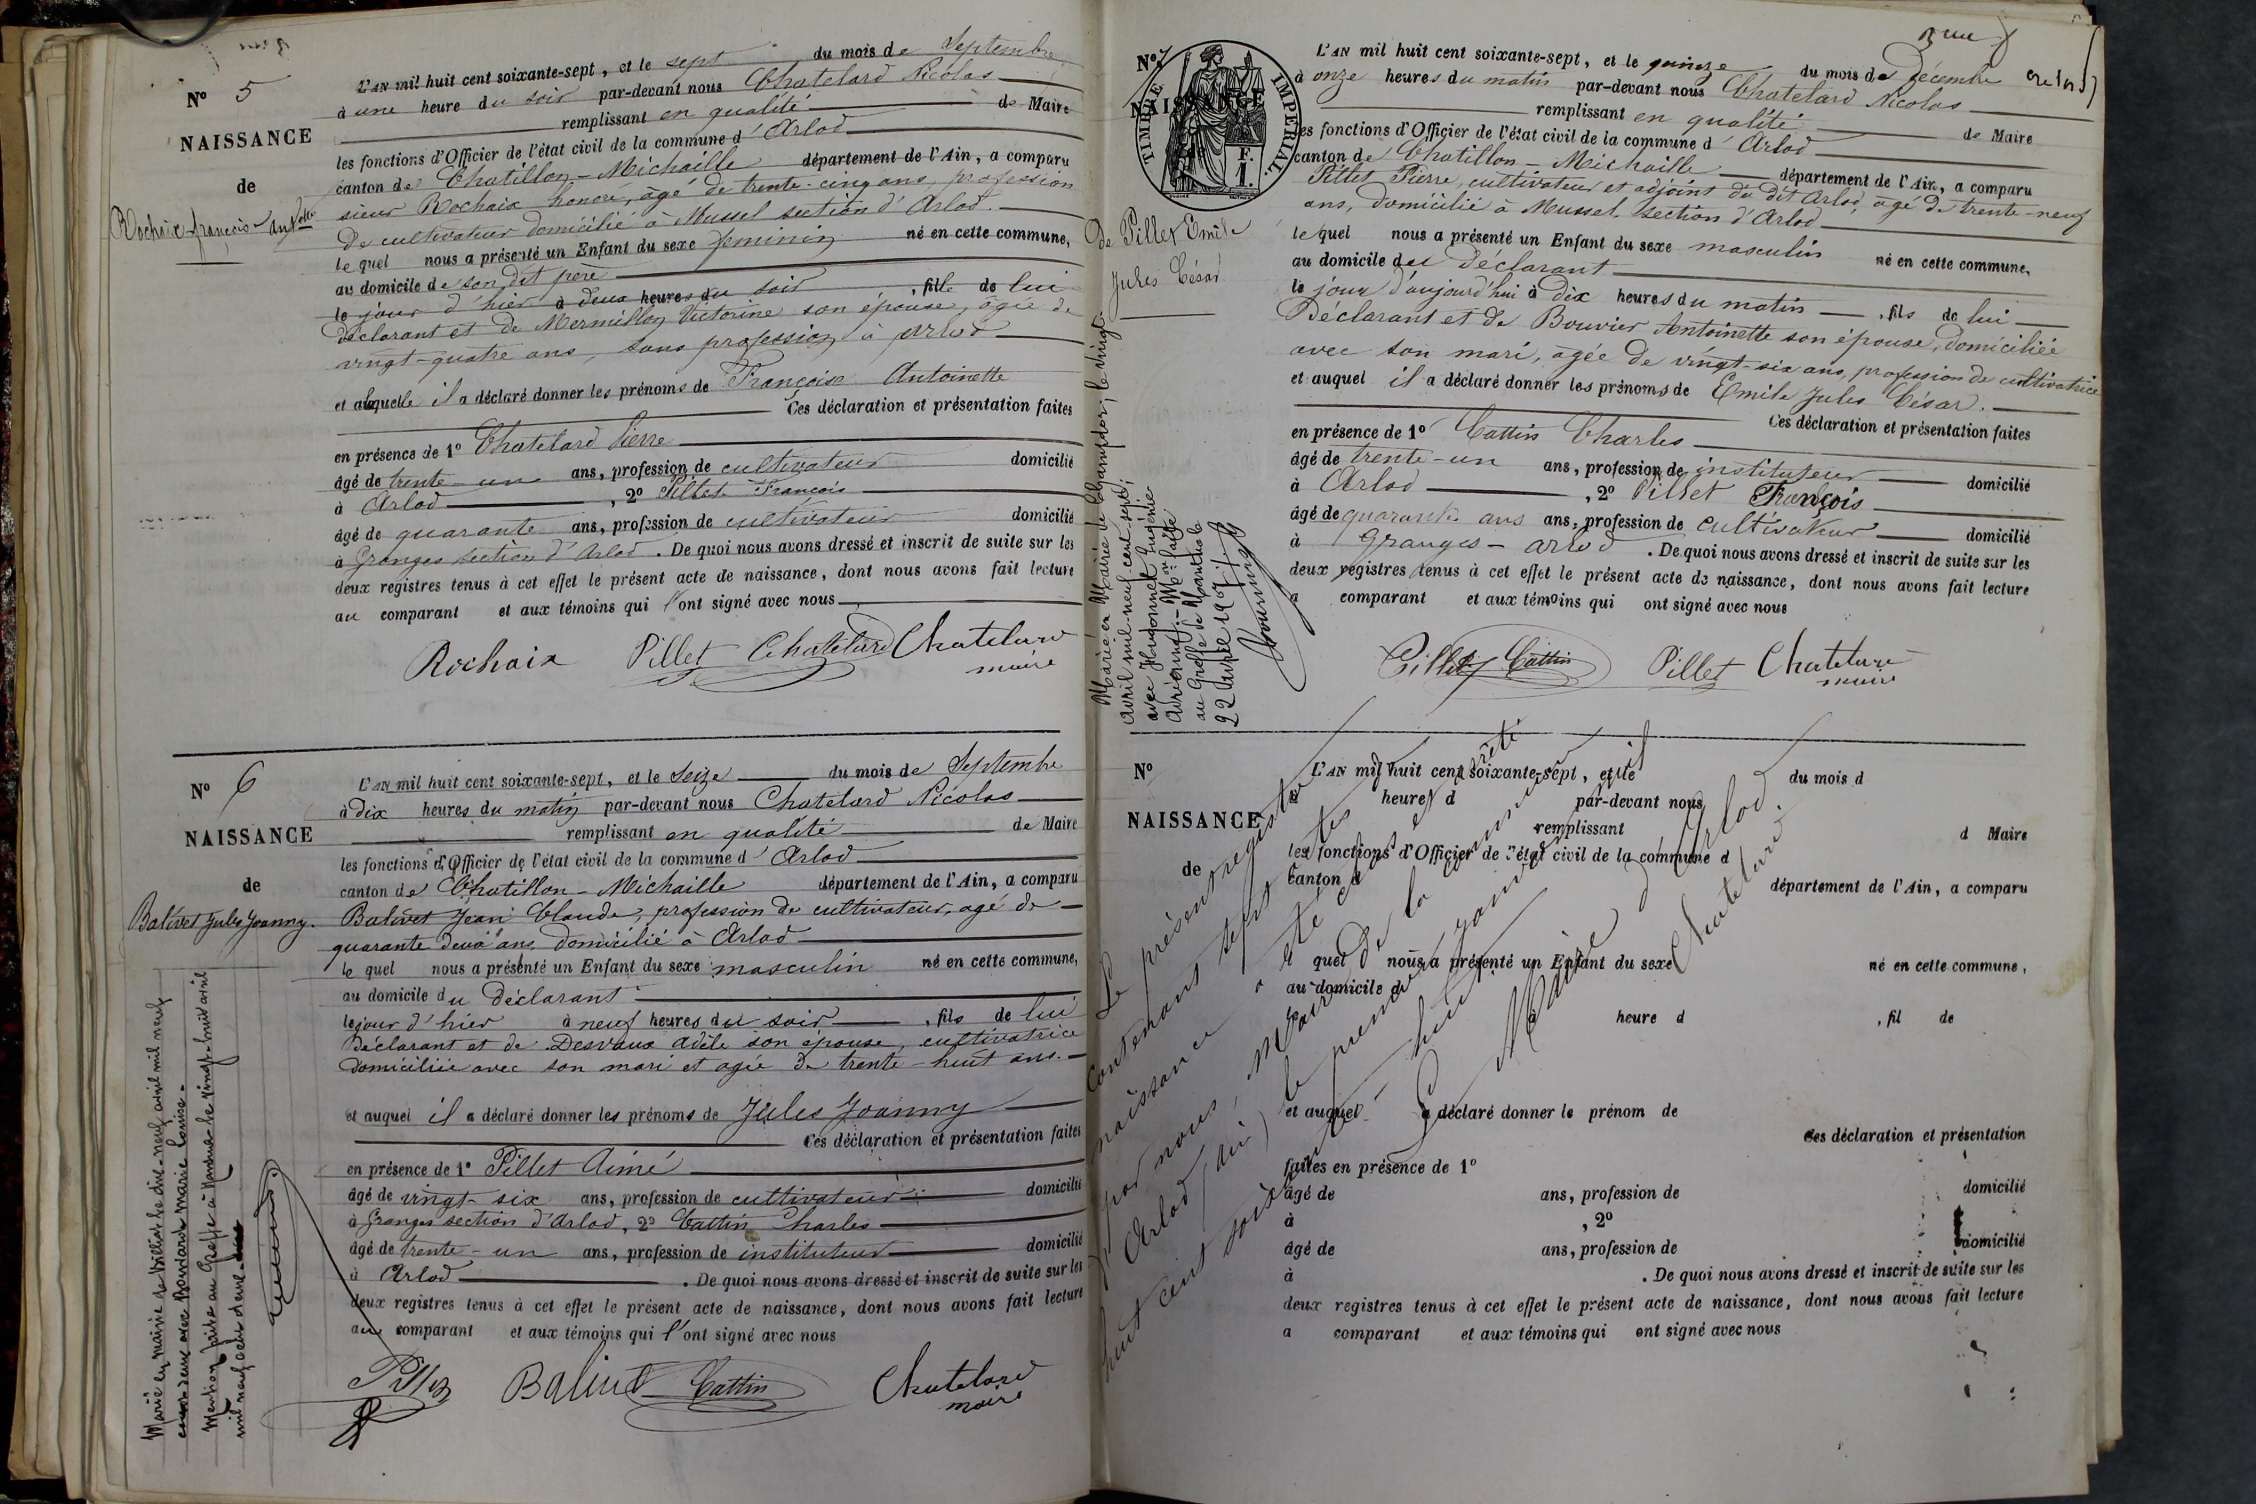 N° 5
NAISSANCE
de
Rochaix françoise Antoinette
L'AN mil huit cent soixante-sept, et le sept du mois de Septembre
à une heure du soir par-devant nous Chatelard Nicolas
remplissant en qualité de Maire
les fonctions d'Officier de l'état civil de la commune d'Arlod
canton de Chatillon-Michaille département de l'Ain, a comparu
sieur Rochaix honoré, âgé de trente-cinq ans, profession
de cultivateur domicilié à Mussel section d'Arlod.
le quel nous a présenté un Enfant du sexe féminin né en cette commune,
au domicile de son dit père
le jour d'hier à deux heures du soir, fille de lui
déclarant et de Mermillon Victorine son épouse, âgée de
vingt-quatre ans, sans profession à Arlod
et à laquelle il a déclaré donner les prénoms de Françoise Antoinette
Ces déclaration et présentation faites
en présence de 1° Chatelard Pierre
âgé de trente-un ans, profession de cultivateur domicilié
à Arlod, 2° Pillet François
âgé de quarante ans, profession de cultivateur domicilié
à Granges section d'Arlod. De quoi nous avons dressé et inscrit de suite sur les
deux registres tenus à cet effet le présent acte de naissance, dont nous avons fait lecture
au comparant et aux témoins qui l'ont signé avec nous
Rochaix Pillet Chatelard Chatelard
maire
N° 6
NAISSANCE
de
Balivet Jules Joanny.
L'AN mil huit cent soixante-sept, et le Seize du mois de Septembre
à dix heures du matin par-devant nous Chatelard Nicolas
remplissant en qualité de Maire
les fonctions d'Officier de l'état civil de la commune d'Arlod
canton de Chatillon-Michaille département de l'Ain, a comparu
Balivet Jean Claude, profession de cultivateur, agé de
quarante deux ans domicilié à Arlod
le quel nous a présenté un Enfant du sexe masculin né en cette commune,
au domicile du Déclarant
le jour d'hier à neuf heures du soir, fils de lui
Déclarant et de Desvaux Adèle son épouse, cultivatrice
domiciliée avec son mari et agée de trente-huit ans.
et auquel il a déclaré donner les prénoms de Jules Joanny
Ces déclaration et présentation faites
en présence de 1° Pillet Aimé
âgé de vingt-six ans, profession de cultivateur domicilié
à Granges section d'Arlod, 2° Cattin Charles
âgé de trente-un ans, profession de instituteur domicilié
à Arlod. De quoi nous avons dressé et inscrit de suite sur les
deux registres tenus à cet effet le présent acte de naissance, dont nous avons fait lecture
au comparant et aux témoins qui l'ont signé avec nous
Balivet Cattin Chatelard
maire
Marié en mairie de Billiat le dix-neuf avril mil neuf
cent deux avec Bondard marie Louise.
Mention faite au Greffe à Nantua le vingt-huit avril
mil neuf cent deux
N° 7
NAISSANCE
TIMBRE IMPERIAL.
F.
1.
de Pillet Emile
Jules César
L'AN mil huit cent soixante-sept, et le quinze du mois de Décembre
à onze heures du matin par-devant nous Chatelard Nicolas
remplissant en qualité de Maire
les fonctions d'Officier de l'état civil de la commune d'Arlod
canton de Chatillon-Michaille département de l'Ain, a comparu
Pillet Pierre, cultivateur et adjoint du dit Arlod, agé de trente-neuf
ans, domicilié à Mussel section d'Arlod
le quel nous a présenté un Enfant du sexe masculin né en cette commune,
au domicile du déclarant
le jour d'aujourd'hui à dix heures du matin, fils de lui
Déclarant et de Bouvier Antoinette son épouse, domiciliée
avec son mari, agée de vingt-six ans, profession de cultivatrice
et auquel il a déclaré donner les prénoms de Emile Jules César.
Ces déclaration et présentation faites
en présence de 1° Cattin Charles
âgé de trente-un ans, profession de instituteur domicilié
à Arlod, 2° Pillet François
âgé de quarante ans ans, profession de cultivateur domicilié
à Granges-Arlod. De quoi nous avons dressé et inscrit de suite sur les
deux registres tenus à cet effet le présent acte de naissance, dont nous avons fait lecture
a comparant et aux témoins qui ont signé avec nous
Pillet Cattin Pillet Chatelard
maire
Marié en Mairie de Champdor, le vingt
avril mil neuf cent sept,
avec Hugonnet Eugénie
Adrienne. Mon faite
au Greffe de Nantua le
22 Avril 1907.
N°
NAISSANCE
de
L'AN mil huit cent soixante-sept, et le du mois d
à heures d par-devant nous
remplissant d Maire
les fonctions d'Officier de l'état civil de la commune d
canton d département de l'Ain, a comparu
le quel nous a présenté un Enfant du sexe né en cette commune,
au domicile d
à heure d, fil de
et auquel a déclaré donner le prénom de
Ces déclaration et présentation
faites en présence de 1°
âgé de ans, profession de domicilié
à, 2°
âgé de ans, profession de domicilié
à. De quoi nous avons dressé et inscrit de suite sur les
deux registres tenus à cet effet le présent acte de naissance, dont nous avons fait lecture
a comparant et aux témoins qui ont signé avec nous
Le présent registre
contenant sept actes de
naissance a été clos et arrêté
par nous, Maire de la commune d'
Arlod (Ain) le premier janvier mil
huit cent soixante-huit.
Le Maire d'Arlod
Chatelard